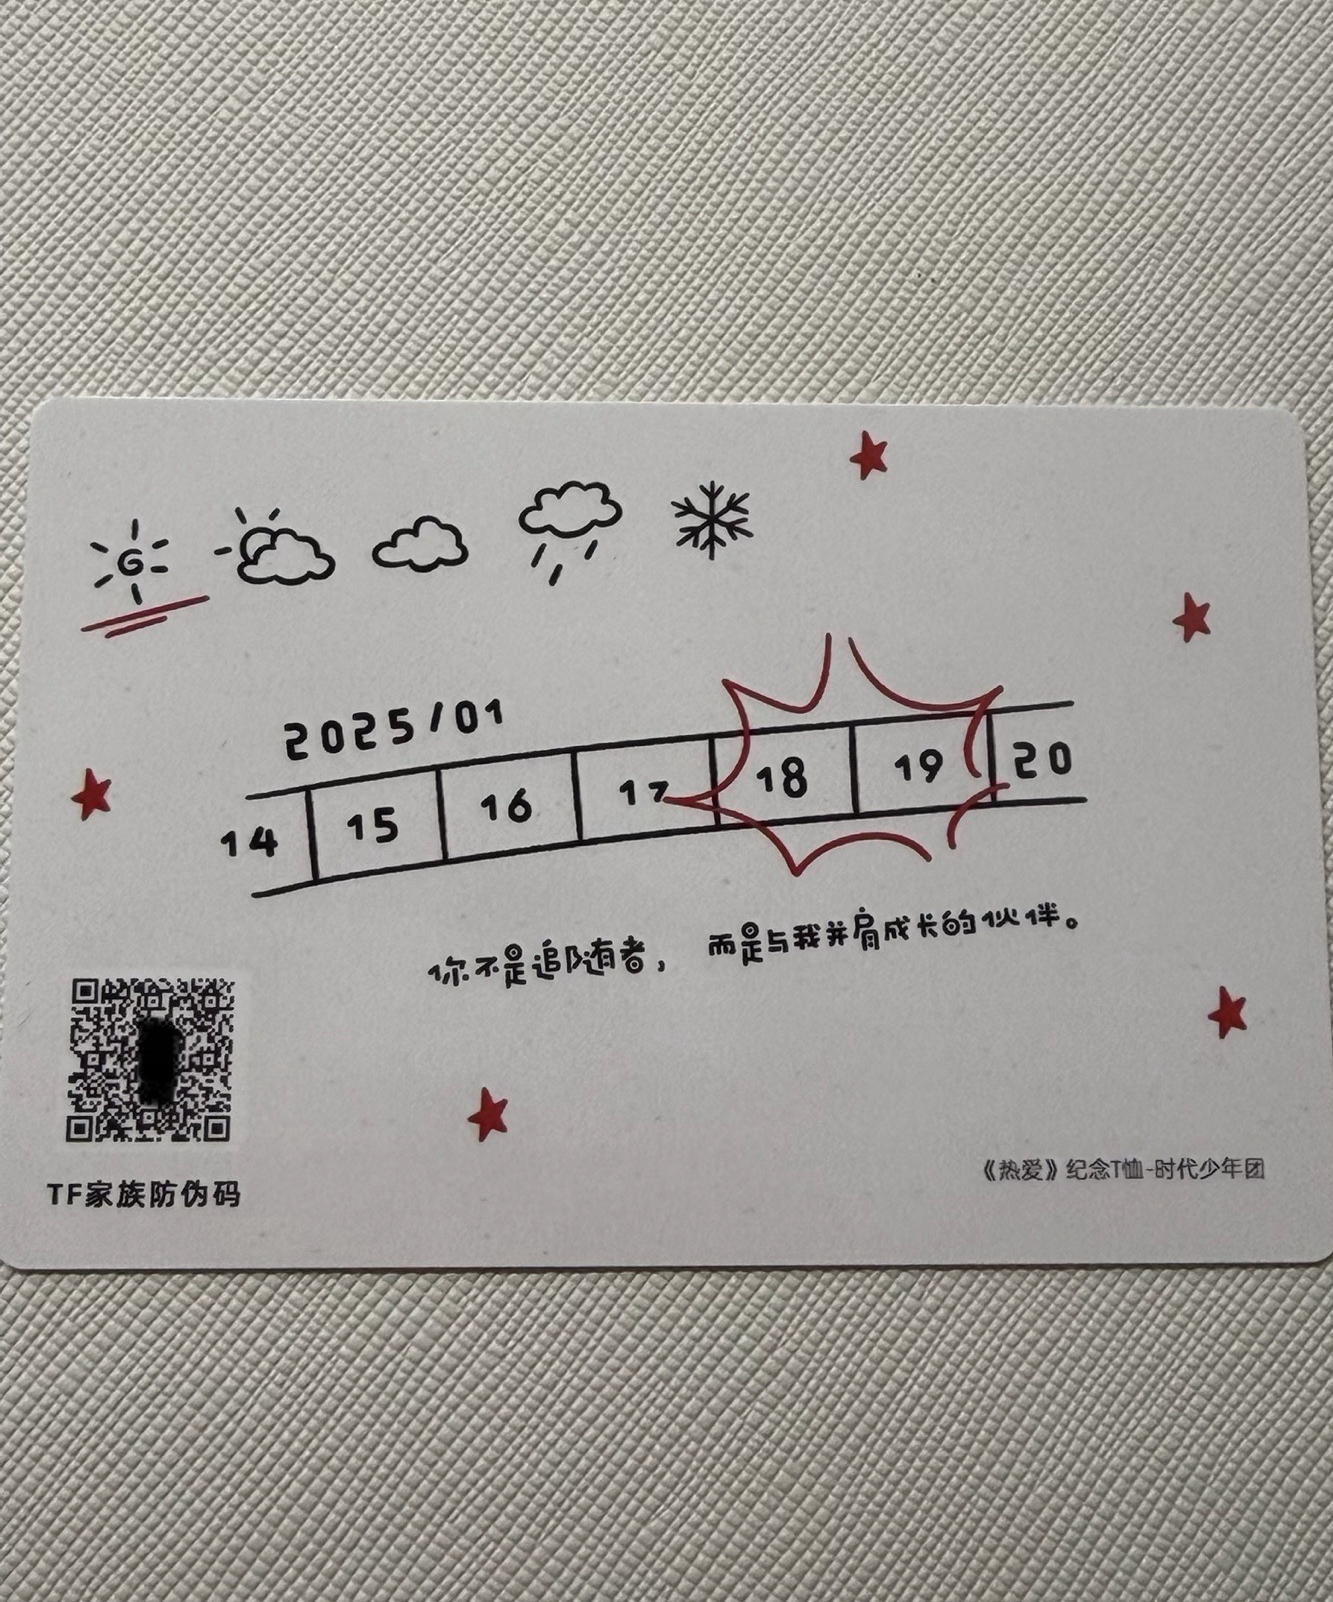 2025/01
14 15 16 17 18 19 20
你不是追随者，而是与我并肩成长的伙伴。
TF家族防伪码
《热爱》纪念T恤-时代少年团